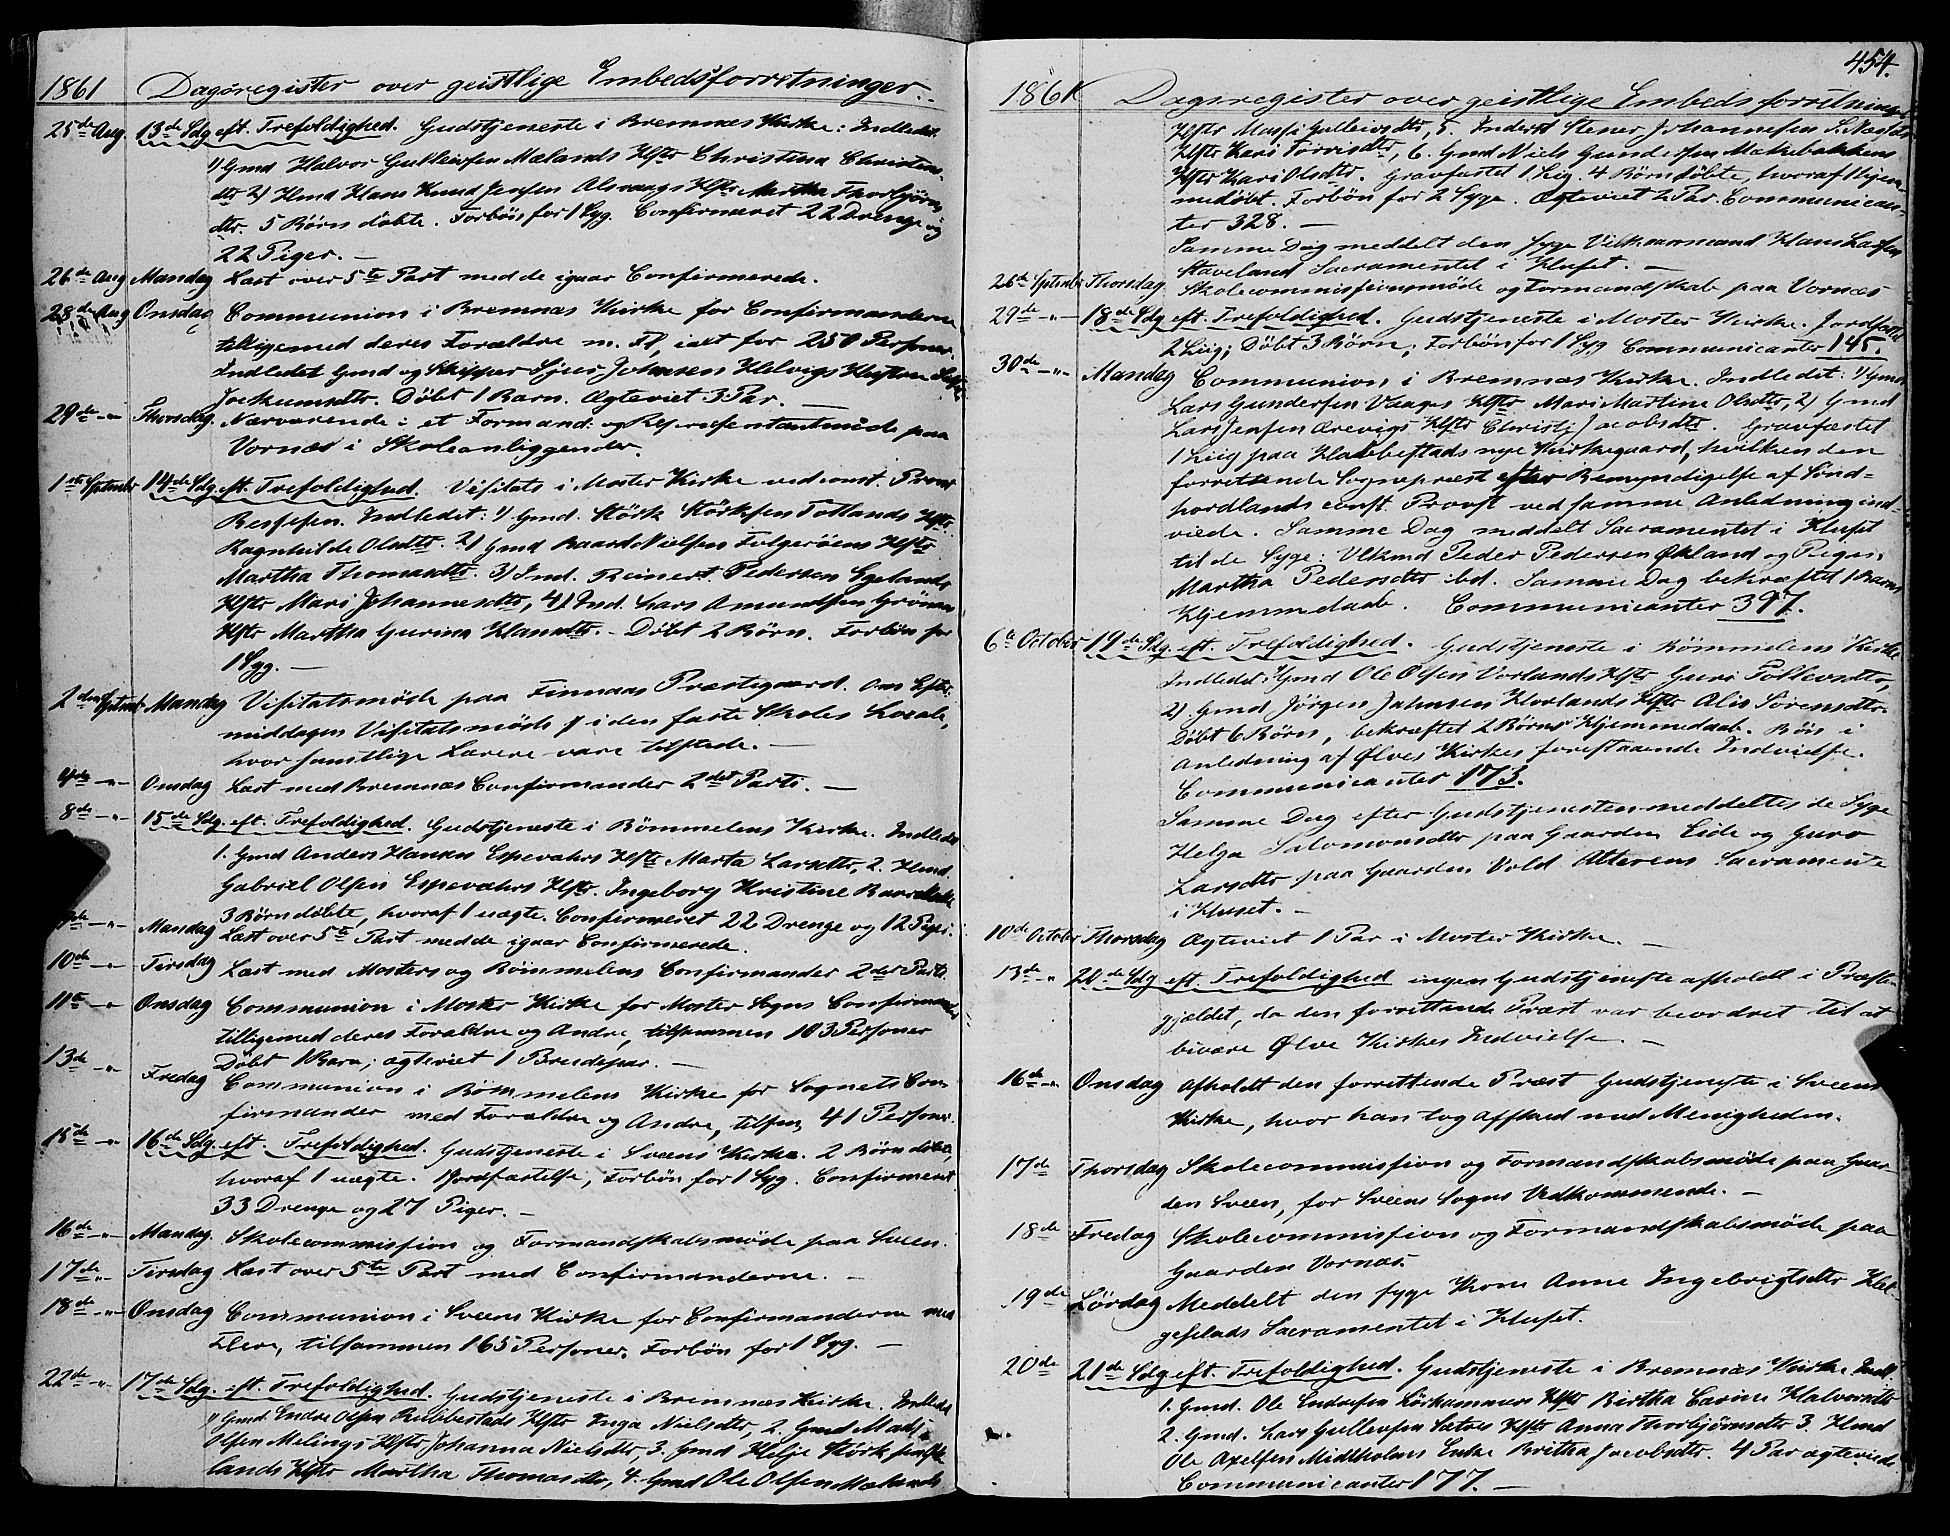 1861 Dagsregister over geistlige Embedsforretninger.
25de Aug. 13de Sdg eft. Trefoldighed. Gudstjeneste i Bremnæs Kirke: Indledet
1) Gmd Halvor Gulleivsen Mælands Hstr Christina Christens-
dtr 2) Hmd Hans Knud Jensen Alsvaags Hstr Martha Thorbjörns-
dtr. 5 Börn döbte. Forbön for 1 Syg. Confirmeret 22 Drenge og
22 Piger. —
26de Aug Mandag Læst over 5te Part med de igaar Confirmerede.
28de Aug Onsdag Communion i Bremnæs Kirke for Confirmanderne
tilligemed deres Forældre m. Fl, ialt for 250 Personer.
Indledet Gmd og Skipper Sjur Johnsen Helvigs Hustru
Jockumsdtr. Döbt 1 Barn. Ægteviet 3 Par. —
29de —"— Thorsdag. Nærværende i et Formand- og Repræsentantmøde paa
Vornæs i Skoleanliggender.
1ste September 14de Sdg. eft. Trefoldighed. Visitats i Moster Kirke ved const. Provst
Indledet: 1) Gmd. Störk Störksen Totlands Hstr.
Ragnhilde Olsdtr. 2) Gmd Baard Nielsen Folgeröens Hstr
Martha Thomasdtr. 3) Ind. Reinert Pedersen Egelands
Hstr Mari Johannesdtr, 4) Ind. Lars Amundsen Grönnes
Hstr Martha Gurina Hansdtr. — Döbt 2 Börn. Forbön for
1 Syg. —
2den Septemb Mandag Visitatsmøde paa Finnaas Præstegaard. Om Efter-
middagen Visitatsmøde i den faste Skoles Locale,
hvor samtlige Lærere vare tilstede. —
4de —"— Onsdag Læst med Bremnæs Confirmander 2det Parti. —
8de —"— 15de Sdg. eft. Trefoldighed. Gudstjeneste i Bömmelens Kirke. Indledet
1. Gmd Anders Hansen Espeværs Hstr Marta Larsdtr, 2. Hmd.
Gabriel Olsen Espeværs Hstr. Ingeborg Kristine
3 Börn döbte, hvoraf 1 uægte. Confirmeret 22 Drenge og 12 Piger.
9de —"— Mandag Læst over 5te Part med de igaar Confirmerede.
10de —"— Tirsdag Læst med Mosters og Bömmelens Confirmander 2det Parti.
11te —"— Onsdag Communion i Moster Kirke for Moster Sogns Confirmander
tilligemed deres Forældre og Andre, tilsammen 103 Personer
Döbt 1 Barn; ægteviet 1 Brudepar. —
13de —"— Fredag Communion i Bömmelens Kirke for Sognets Con-
firmander med Forældre og Andre, tilsm 41 Personer.
15de —"— 16de Sdg. eft. Trefoldighed. Gudstjeneste i Sveens Kirke. 2 Börn döbte,
hvoraf 1 uægte. 1 Jordfæstelse, Forbön for 1 Syg. Confirmeret
33 Drenge og 27 Piger. —
16de —"— Mandag. Skolecommission og Formandskabsmøde paa Sveen.
17de —"— Tirsdag Læst over 5te Part med Confirmanderne. —
18de —"— Onsdag Communion i Sveens Kirke for Confirmanderne med
Flere, tilsammen 165 Personer. Forbön for 1 Syg. —
22de —"— 17de Sdg. eft. Trefoldighed. Gudstjeneste i Bremnæs Kirke. Indledet
1) Gmd Endre Olsen Rubbestads Hstr Inga Nielsdtr, 2. Gmd Mads
Olsen Melings Hstr Johanna Nielsdtr, 3. Gmd Helje
lands Hstr Martha Thomasdtr, 4. Gmd Ole Olsen Mælands
454.
1861 Dagsregister over geistlige Embedsforretninger
Hstr Massi Gulleivsdtr, 5. Inderst Stener Johannesen
Hstr Kari Torrisdtr, 6. Gmd Niels Gundersen Møkebakkens
Hstr Kari Olsdtr. Gravfæstet 1 Lig. 4 Börn döbte, hvoraf 1 hjem-
medöbt. Forbön for 2 Syge. Ægteviet 2 Par. Communican-
ter 328. —
Samme Dag meddelt den syge Vilkaarmand Hans Larsen
Staveland Sacramentet i Huset. —
26de September Thorsdag Skolecommissionsmøde og Formandskab paa Vornæs
29de —"— 18de Sdg eft. Trefoldighed. Gudstjeneste i Moster Kirke. Jordfæstet
2 Liig; Döbt 3 Börn; Forbön for 1 Syg Communicanter 145.
30de —"— Mandag Communion i Bremnæs Kirke. Indledet: 1) Gmd
Lars Gundersen Vaages Hstr Mari Martine Olsdtr, 2) Gmd
Lars Jensen Ærevigs Hstr Christi Jacobsdtr. Gravfæstet
1 Liig paa Habbestads nye Kirkegaard, hvilken den
forrettende Sognepræst efter Bemyndigelse af Sønd-
hordlands const. Provst ved samme Anledning ind-
viede. Samme Dag meddelt Sacramentet i Huset
til de Syge: Vlkmd Peder Pedersen Økland og Pigen
Martha Pedersdtr ibd. Samme Dag bekræftet 1 Barns
Hjemmedaab. Communicanter 397.
6te October 19de Sdg. eft. Trefoldighed. Gudstjeneste i Bömmelens Kirke
Indledet: 1) Gmd Ole Olsen Vorlands Hstr Guri Tollevsdtr,
2) Gmd Jörgen Johnsen Hovlands Hstr Alis Sörensdtr.
Döbt 6 Börn, bekræftet 2 Börns Hjemmedaab. Bön i
Anledning af Ølves Kirkes forestaaende Indvielse.
Communicanter 173.
Samme Dag efter Gudstjenesten meddeltes de Syge
Helga Salomonsdtr paa Gaarden Eide og Guro
Larsdtr paa Gaarden Vold Alterens Sacramente
i Huset. —
10de October Thorsdag Ægteviet 1 Par i Moster Kirke. —
13de —"— 20de Sdg eft. Trefoldighed ingen Gudstjeneste afholdt i Præste-
gjældet, da den forrettende Præst var beordret til at
bivære Ølve Kirkes Indvielse. —
16de —"— Onsdag Afholdt den forrettende Præst Gudstjeneste i Sveens
Kirke, hvor han tog Afsked med Menigheden.
17de Thorsdag Skolecommission og Formandskabsmøde paa Gaar-
den Sveen, for Sveens Sogns Vedkommende. —
18de Fredag Skolecommission og Formandskabsmøde paa
Gaarden Vornæs.
19de Lördag Meddelt den syge Kone Anne Ingebrigtsdtr Hel-
gesplads Sacramentet i Huset.
20de 21de Sdg eft. Trefoldighed. Gudstjeneste i Bremnæs Kirke Indl.
1. Gmd. Ole Endresen Lökhammers Hstr Birtha Carine Halvorsdtr
2. Gmd. Lars Gullevsen Sætres Hstr Anna Thorbjörnsdtr 3. Hmd
Ole Axelsen Midtholms Enke Britha Jacobsdtr. 4 Par ægteviede
Communicanter 177. —